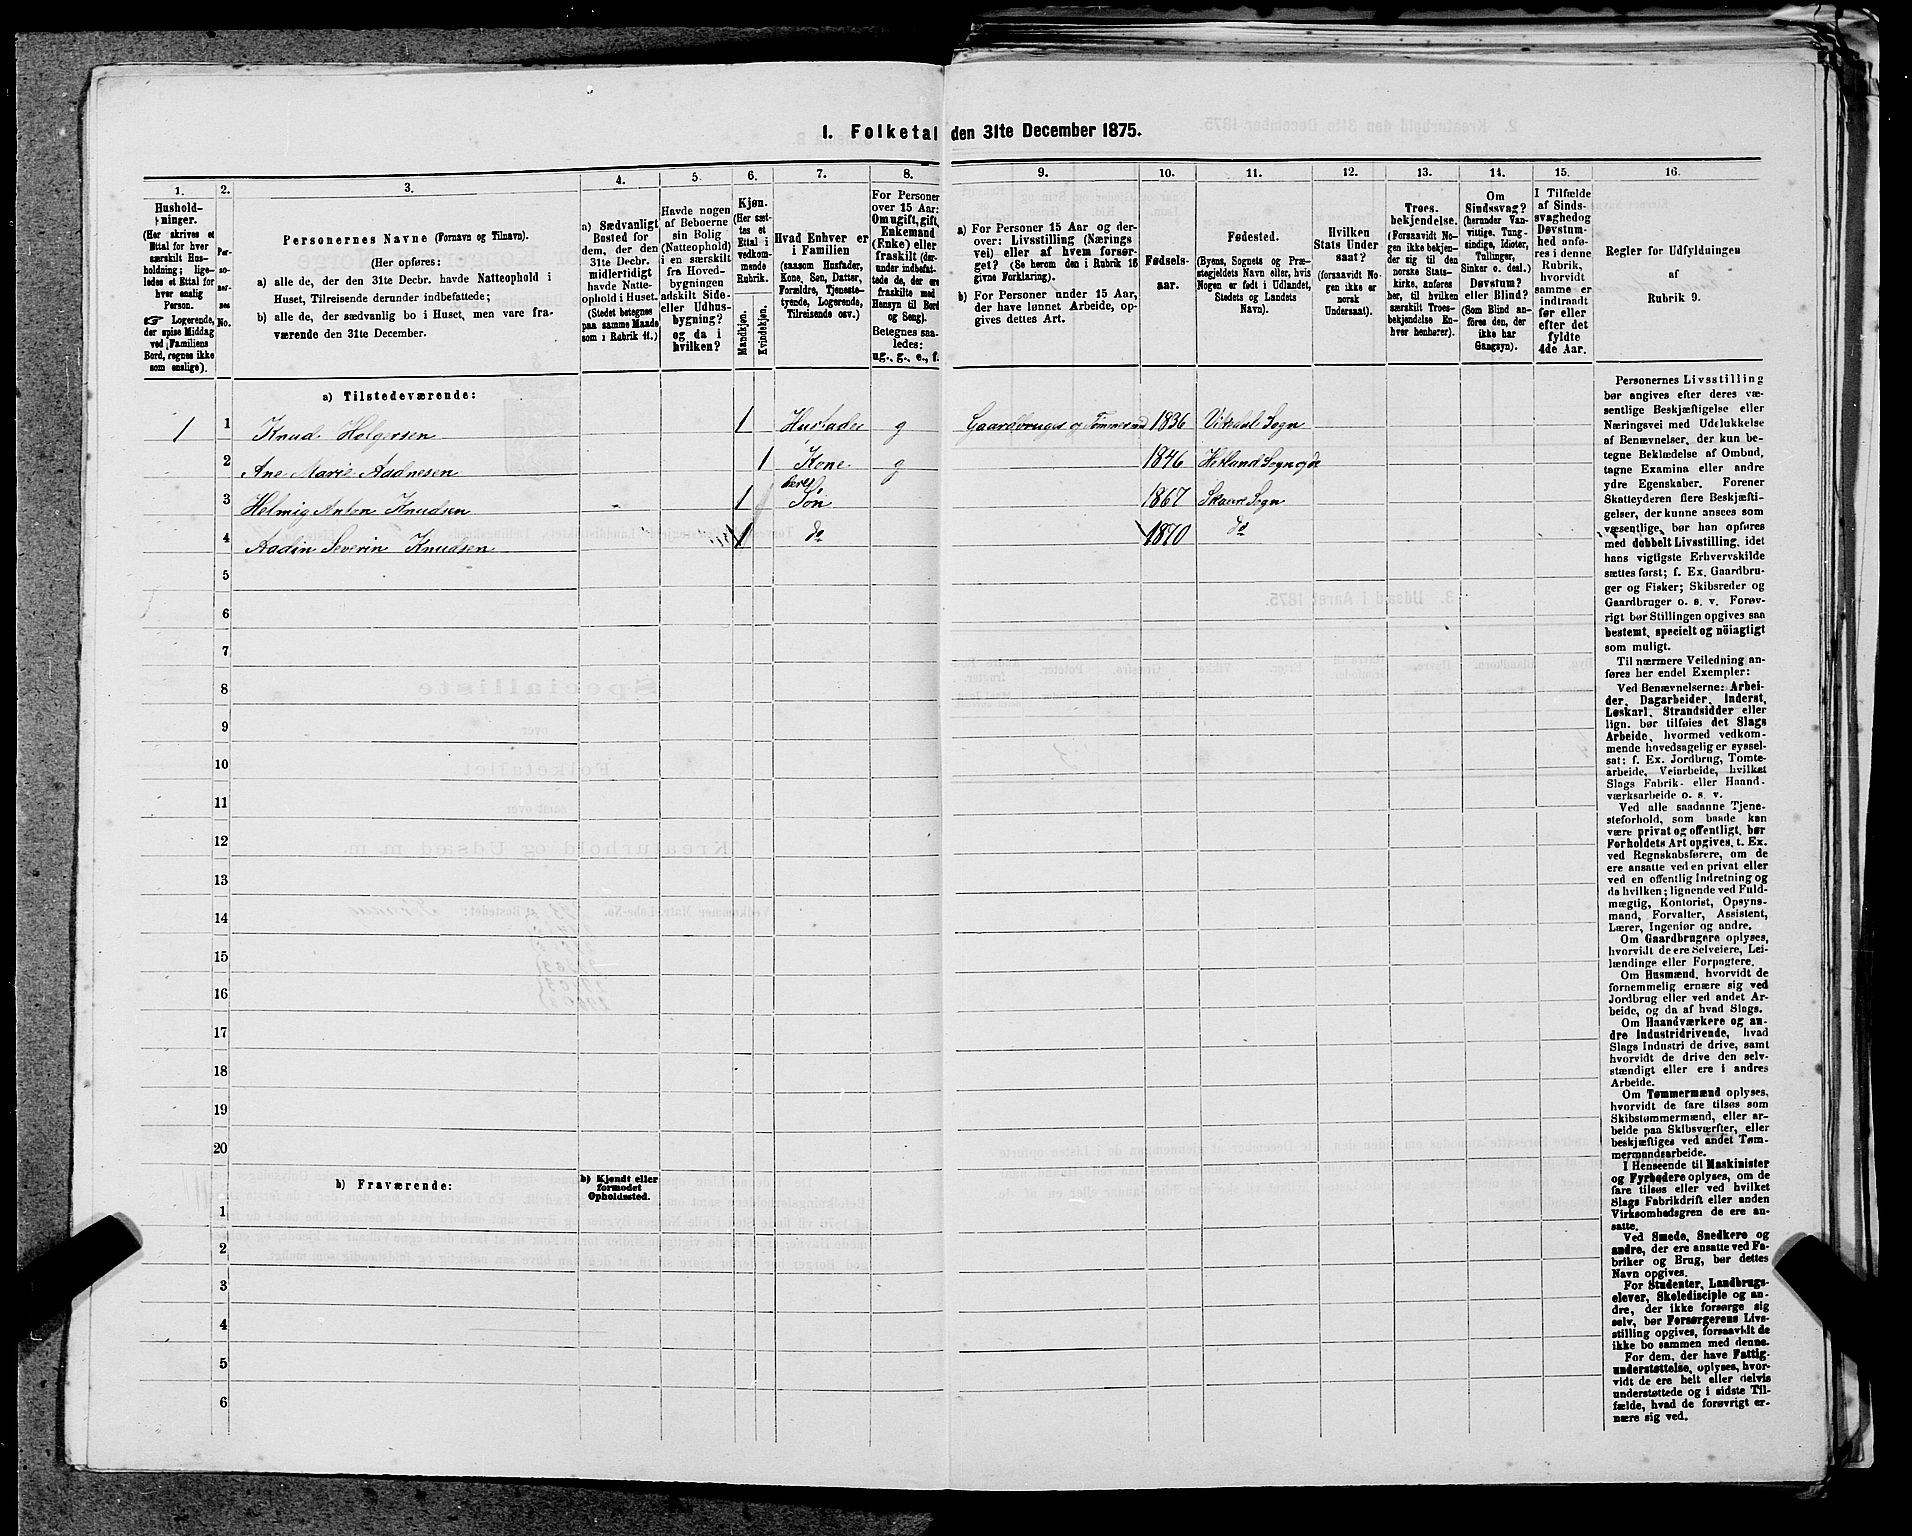 1. Folketal den 31te December 1875.
1. 2. 3. 4. 5. 6. 7. 8. 9. 10. 11. 12. 13. 14. 15. 16.
Hushold-
ninger.
(Her skrives et
Ettal for hver
særskilt Hus-
holdning; lige-
ledes et Ettal for
hver enslig
Person.
☞ Logerende,
der spise Middag
ved Familiens
Bord, regnes ikke
som enslige).
Per-
so-
ner-
nes
No.
Personernes Navne (Fornavn og Tilnavn).
(Her opføres:
a) alle de, der den 31te Decbr. havde Natteophold i
Huset, Tilreisende derunder indbefattede;
b) alle de, der sædvanlig bo i Huset, men vare fra-
værende den 31te December.
a) Sædvanligt
Bosted for
dem, der den
31te Decbr.
midlertidigt
havde Natte-
ophold i Huset.
(Stedet betegnes
paa samme Maade
som i Rubrik 11.)
Havde nogen
af Beboerne
sin Bolig
(Natteophold)
i en særskilt
fra Hoved-
bygningen
adskilt Side-
eller Udhus-
bygning?
og da i
hvilken?
Kjøn.
(Her sæt-
tes et
Ettal i
vedkom-
mende
Rubrik.
Mandkjøn.
Kvindekjøn.
Hvad Enhver er
i Familien
(saasom Husfader,
Kone, Søn, Datter,
Forældre, Tjeneste-
tyende, Logerende,
Tilreisende osv.)
For Personer
over 15 Aar:
Om ugift, gift,
Enkemand
(Enke) eller
fraskilt (der-
under indbefat-
tede de, der ere
fraskilte med
Hensyn til Bord
og Seng).
Betegnes saa-
ledes:
ug., g., e., f.
a) For Personer 15 Aar og der-
over: Livsstilling (Nærings
vei) eller af hvem forsør-
get? (Se herom den i Rubrik 16
givne Forklaring).
b) For Personer under 15 Aar,
der have lønnet Arbeide, op-
gives dettes Art.
Fødsels-
aar.
Fødested.
(Byens, Sognets og Præ-
stegjeldets Navn eller, hvis
Nogen er født i Udlandet,
Stedets og Landets
Navn).
Hvilken
Stats Under
saat?
(forsaavidt No-
gen ikke er
norsk
Undersaat).
Troes-
bekjendelse.
(Forsaavidt No-
gen ikke bekjen-
der sig til den
norske Stats-
kirke, anføres
her, til hvilken
særskilt Troes-
bekjendelse En-
hver henhører).
Om
Sindssvag?
(herunder Van-
vittige, Tung-
sindige, Idioter,
Tullinger,
Sinker o. desl.)
Døvstum?
eller Blind?
(Som Blind an-
føres den, der
ikke har
Gangsyn).
I Tilfælde
af Sinds-
svaghed og
Døvstum-
hed anfø-
res i denne
Rubrik,
hvorvidt
samme er
indtraadt
før eller
efter det
fyldte
4de Aar.
Regler for Udfyldningen
af
Rubrik 9.
a) Tilstedeværende:
1 1 Knud Holgersen 1 Husfader g Gaardbruger og Tømmermd 1836 Vikedal Sogn
2 Ane Marie Aadnesen 1 Kone g 1846 Hetland Sogn
3 Helmig Anton Knudsen 1 Søn 1867 Skaare Sogn
4 Aadin Severin Knudsen 1 do 1870 do
5
6
7
8
9
10
11
12
13
14
15
16
17
18
19
20
b) Fraværende:
b) Kjendt eller
formodet
Opholdssted.
1
2
3
4
5
6
Personernes Livsstilling
bør angives efter deres væ-
sentlige Beskjæftigelse eller
Næringsvei med Udelukkelse
af Benævnelser, der kun be-
tegne Beklædelse af Ombud,
tagne Examina eller andre
ydre Egenskaber. Forener
Skatteyderen flere Beskjæfti-
gelser, der kunne ansees som
væsentlige, bør han opføres
med dobbelt Livsstilling, idet
hans vigtigste Erhvervskilde
sættes først; f. Ex. Gaardbru-
ger og Fisker; Skibsreder og
Gaardbruger o. s. v. Forøv-
rigt bør Stillingen opgives saa
bestemt, specielt og nöiagtigt
som muligt.
Til nærmere Veiledning an-
føres her endel Exempler:
Ved Benævnelserne: Arbei-
der, Dagarbeider, Inderst,
Løskarl, Strandsidder eller
lign. bør tilføies det Slags
Arbeide, hvormed vedkom-
mende hovedsagelig er syssel-
sat; f. Ex. Jordbrug, Tomte-
arbeide, Veiarbeide, hvilket
Slags Fabrik- eller Haand-
værksarbeide o. s. v.
Ved alle saadanne Tjene-
steforhold, som baade kan
være privat og offentligt, bør
Forholdets Art opgives, t. Ex.
ved Regnskabsførere, om de
ere ansatte ved en privat eller
ved en offentlig Indretning og
da hvilken; lignende ved Fuld-
mægtig, Kontorist, Opsyns-
mand, Forvalter, Assistent,
Lærer, Ingeniør og andre.
Om Gaardbrugere oplyses,
hvorvidt de ere Selveiere, Lei-
lændinge eller Forpagtere.
Om Husmænd, hvorvidt de
fornemmelig ernære sig ved
Jordbrug eller ved andet Ar-
beide, og da af hvad Slags.
Om Haandværkere og an-
dre Industridrivende, hvad
Slags Industri de drive, samt
hvorvidt de drive den selv-
stændigt eller ere i andres
Arbeide.
Om Tømmermænd oplyses,
hvorvidt de fare tilsøs som
Skibstømmermænd, eller ar-
beide paa Skibsværfter, eller
beskjæftiges ved andet Tøm-
mermandsarbeide.
I Henseende til Maskinister
og Fyrbødere oplyses, om de
fare tilsøs eller ved hvilket
Slags Fabrikdrift eller anden
Virksomhedsgren de ere an-
satte.
Ved Smede, Snedkere og
andre, der ere ansatte ved Fa-
briker og Brug, bør dettes
Navn opgives.
For Studenter, Landbrugs-
elever, Skoledisciple og an-
dre, der ikke forsørge sig
selv, bør Forsørgerens Livs-
stilling opgives, forsaavidt de
ikke bo sammen med denne.
For dem, der have Fattig-
understøttelse, oplyses, hvor-
vidt de ere helt eller delvis
understøttede og i sidste Til-
fælde, hvad de forøvrigt er-
nære sig ved.